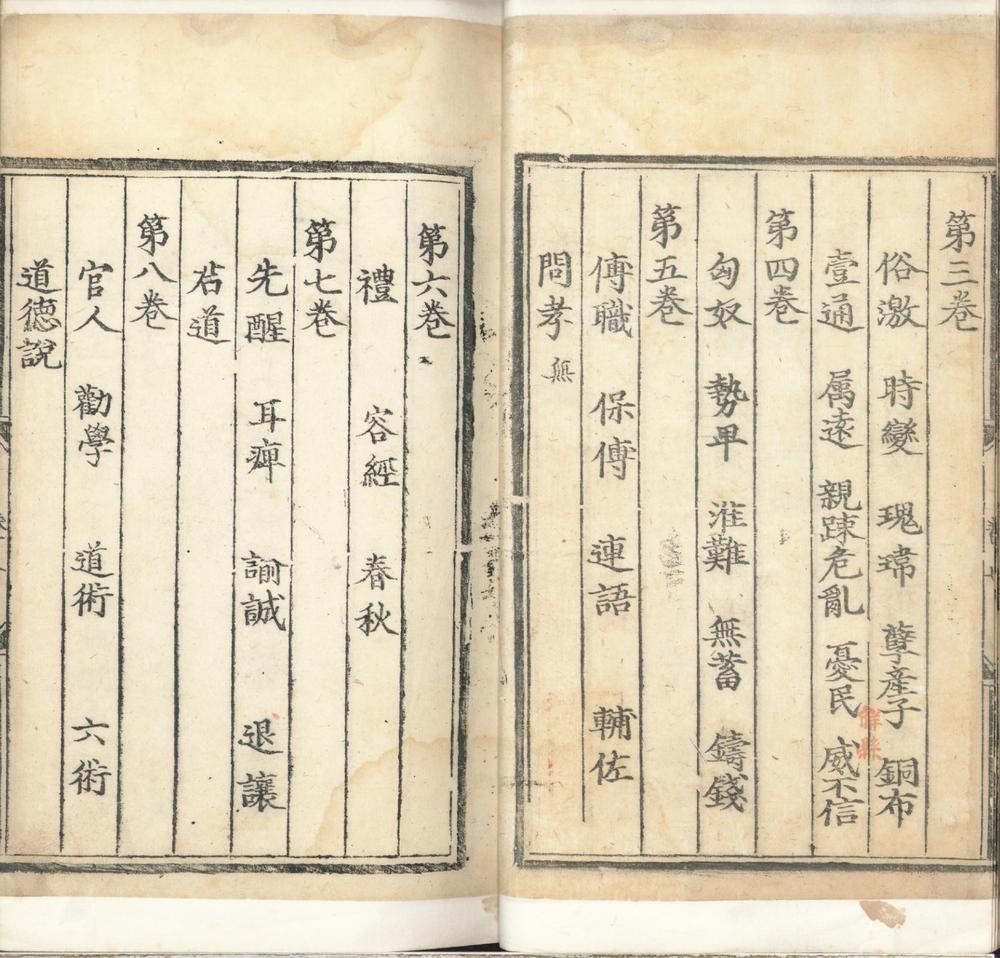 第三巻
俗激 時變 瑰瑋 孽産子 銅布
壹通 属遠 親踈危亂 憂民 威不信
第四巻
匈奴 勢甲 淮難 無蓄 鑄錢
第五巻
傅職 保傅 連語 輔佐
問孝 無
第六巻
禮 容經 春秋
第七巻
先醒 耳痺 諭誠 退讓
君道
第八巻
官人 勸學 道術 六術
道德說